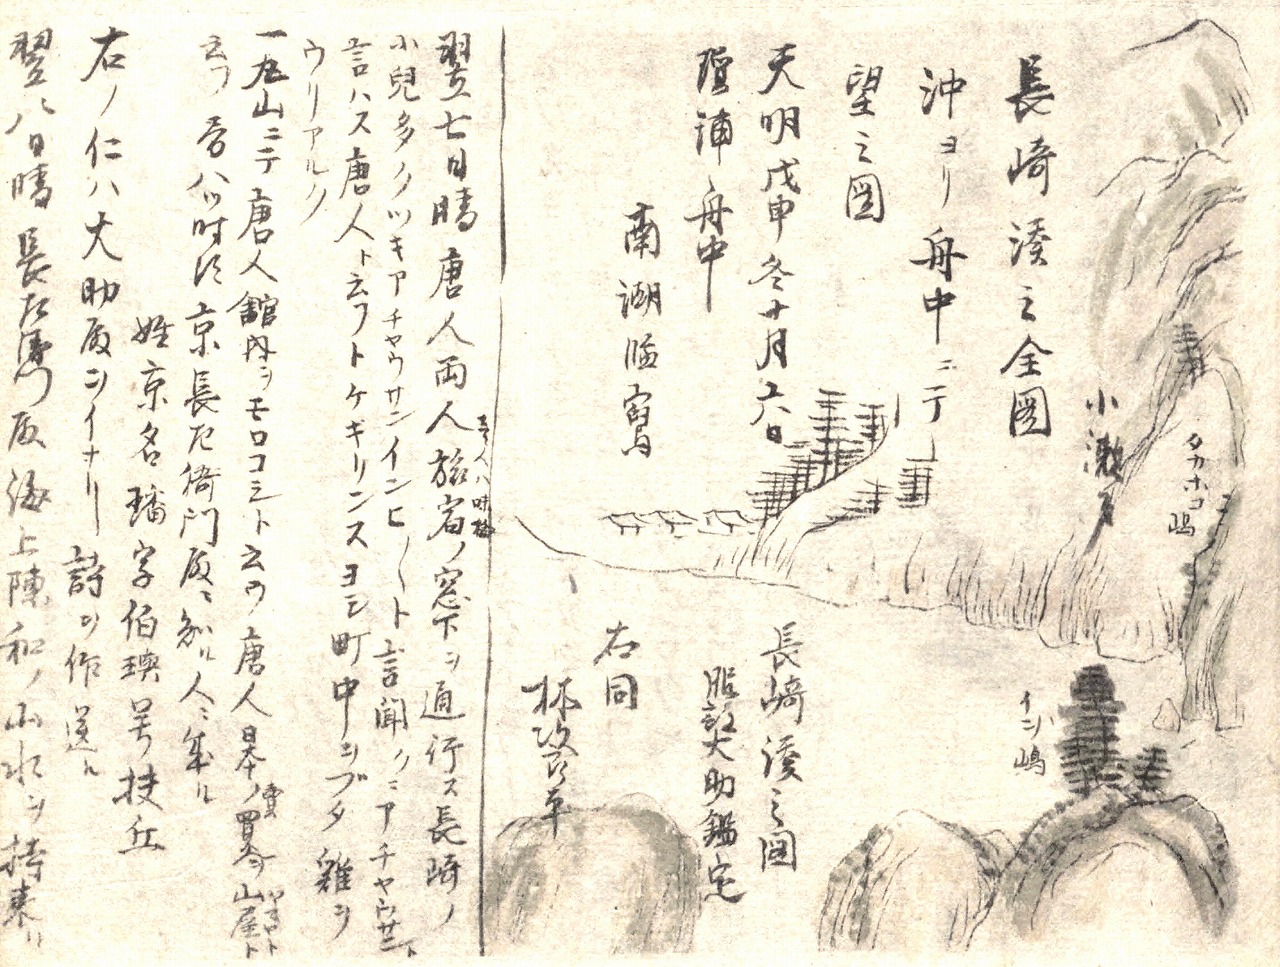 長崎湊之全圖
沖ヨリ舟中ニテ
望之圖
天明戊申冬十月六日
舟中
南湖臨寫
小瀬戸
タカホコ嶋
長崎湊之図
大助鑑定
右同
林次良平
嶋
翌七日晴唐人両人旅宿ノ窓下ヲ通行ス長崎ノ
小兒多クツキアチヤウサンインヒ〱ト言聞クニアチヤウサント
言ハス唐人ト云フトケキリンスヨシ町中ヲブタ雞ヲ
ウリアルク
一丸山ニテ唐人舘内ヲモロコシト云フ唐人日本ノ賣買ヲ山屋ト
云フ
京長左衛門殿ニ知ル人ニ成ル
姓京名璠字伯瑛号扶丘
右ノ仁ハ大助殿ヲイナリ詩ヲ作送ル
翌八日晴長左衛門殿海上陳和ノ山水ヲ持来リ